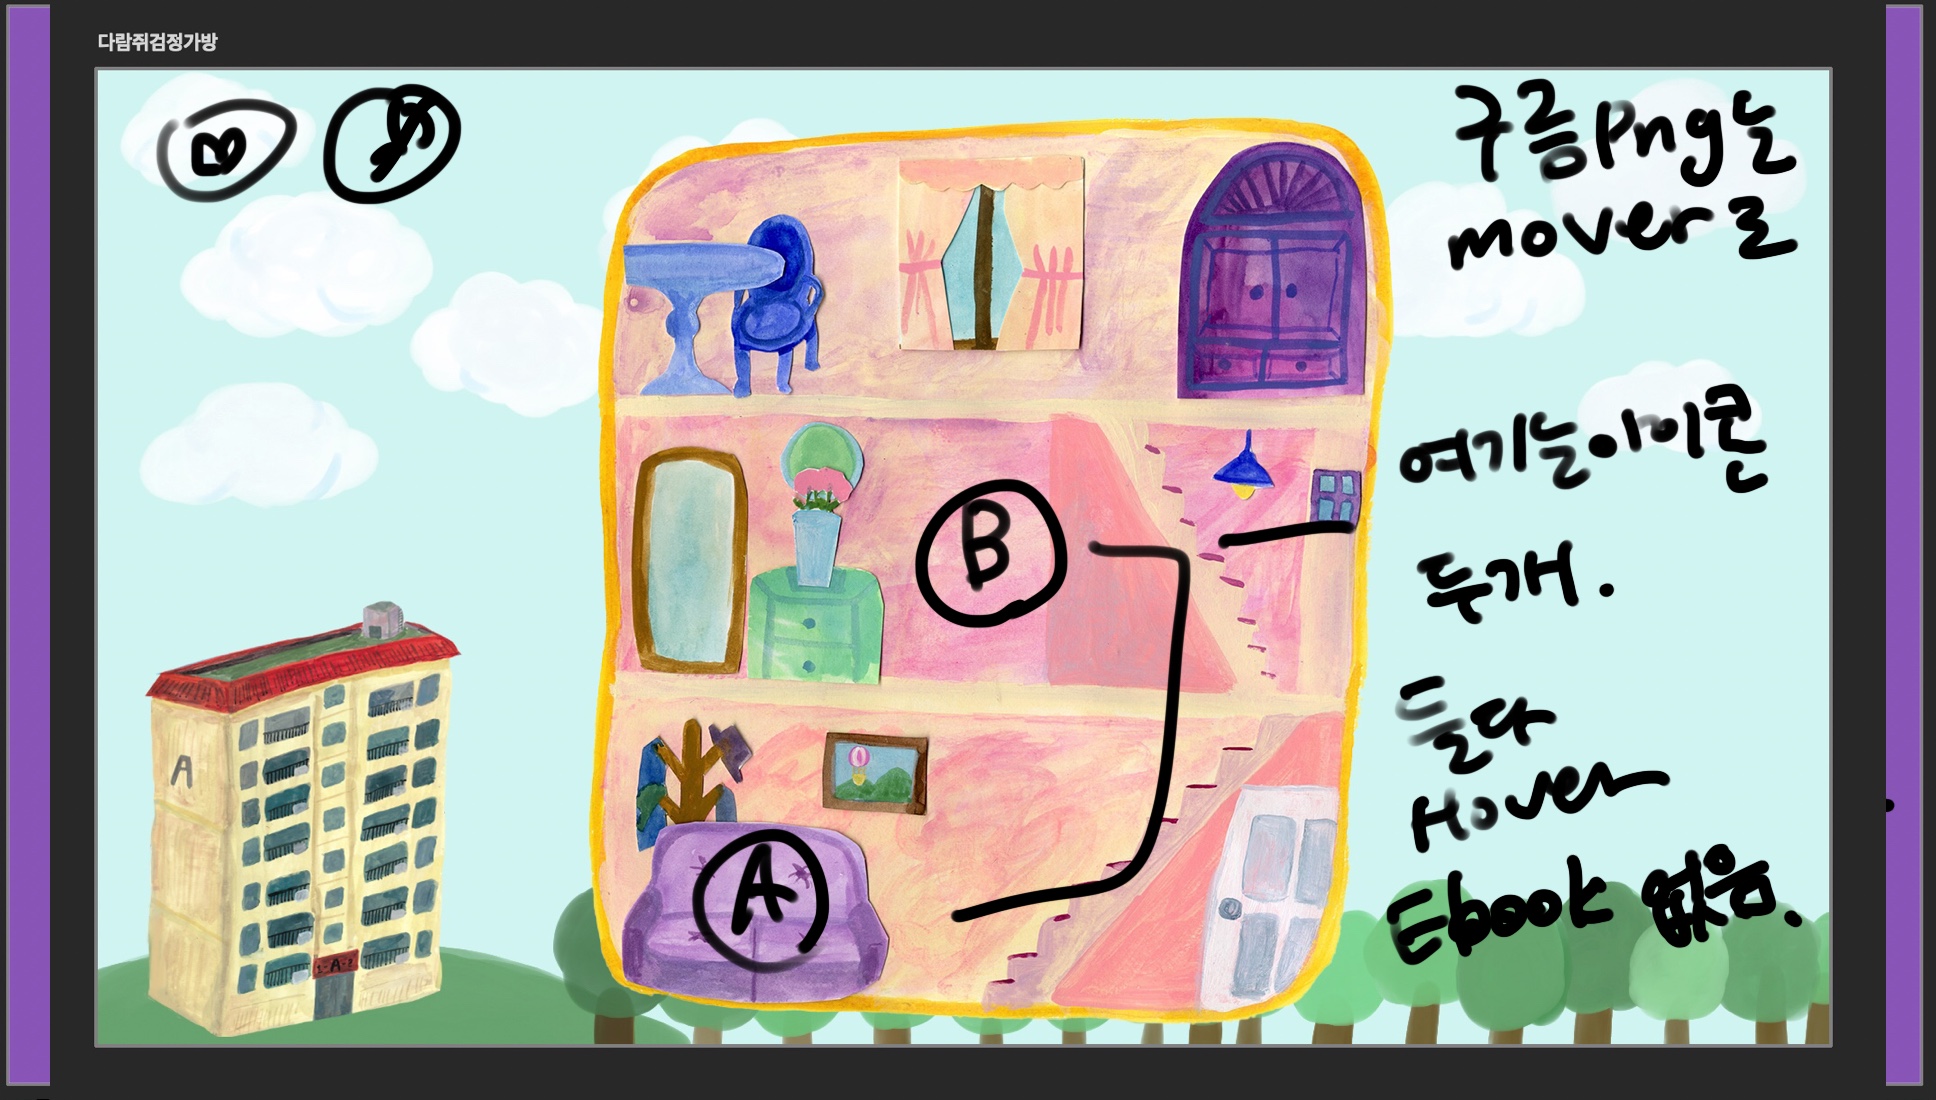 다람쥐검정가방
구름 Png는
mover로
여기는 아이콘
두개.
둘다
Hover
Ebook 없음.
B
A
A
1-A-2